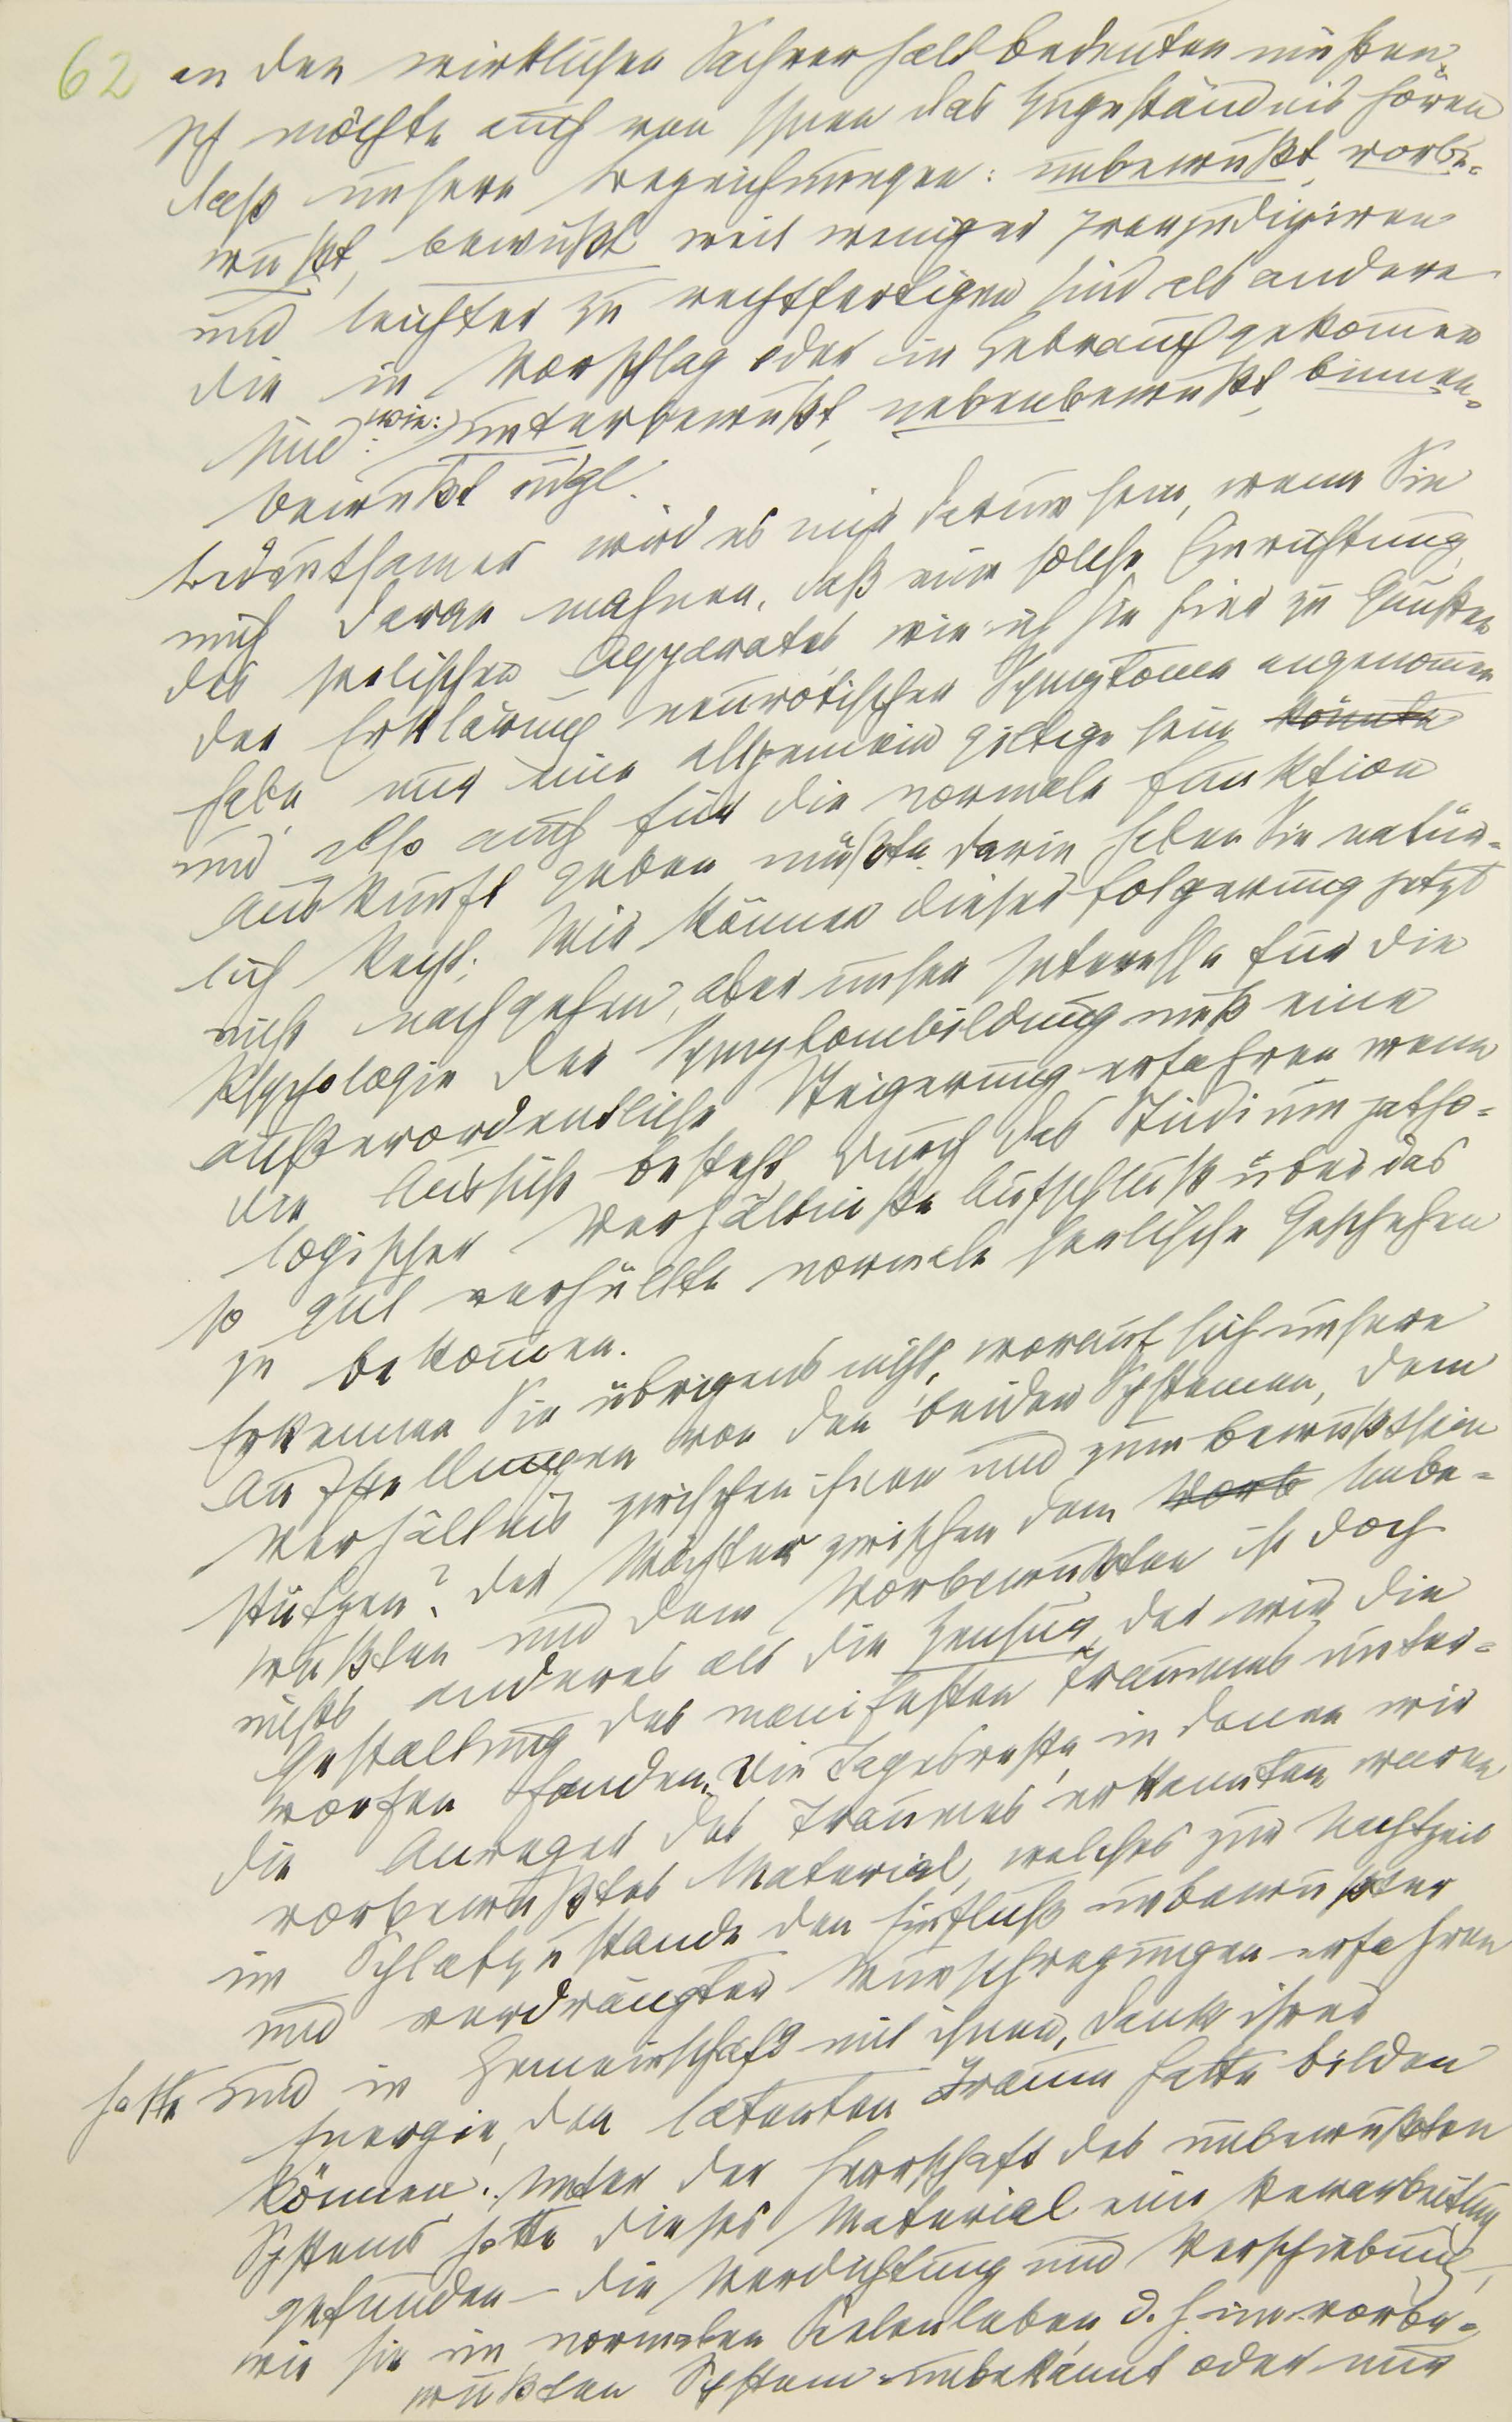 62 an den wirklichen Sachverhalt bedeuten müßen.
Ich möchte auch von Ihnen das Zugeständnis hören
daß unsere Bezeichnungen: unbewußt, vorbe-
wußt, bewußt weit weniger praejudiziren
und leichter zu rechtfertigen sind als andere
die in Vorschlag oder in Gebrauch gekommen
sind wie: unterbewußt, nebenbewußt, binnen-
bewußt udgl.
Bedeutsamer wird es mir darum sein, wenn Sie
mich daran mahnen, daß eine solche Einrichtung
des seelischen Apparates wie ich sie hier zu Gunsten
der Erklärung neurotischer Symptome angenommen
habe, nur eine allgemein giltige sein könnte
und also auch für die normale Funktion
Auskunft geben müßte. Darin haben Sie natür-
lich Recht. Wir können dieser Folgerung jetzt
nicht nachgehen, aber unser Interesse für die
Psychologie der Symptombildung muß eine
außerordentliche Steigerung erfahren wenn
die Aussicht besteht, durch das Studium patho-
logischer Verhältniße Aufschluß über das
so gut verhüllte normale seelische Geschehen
zu bekommen.
Erkennen Sie übrigens nicht, worauf sich unsere
Aufstellungen von den beiden Systemen, dem
Verhältnis zwischen ihnen und zum Bewußtsein
stützen? Der Wächter zwischen dem Vorb Unbe-
wußten und dem Vorbewußten ist doch
nichts anderes als die Zensur, der wir die
Gestaltung des manifesten Traumes unter-
worfen fanden. Die Tagesreste, in denen wir
die Anreger des Traumes erkannten waren
vorbewußtes Material, welches zur Nachtzeit
im Schlafzustande den Einfluß unbewußter
und verdrängter Wunschregungen erfahren
hatte und in Gemeinschaft mit ihnen, dank ihrer
Energie, den latenten Traum hatte bilden
können. Unter der Herrschaft des unbewußten
Systems hatte dieses Material eine Verarbeitung
gefunden – die Verdichtung und Verschiebung –,
wie sie im normalen Seelenleben, d. h. im vorbe-
wußten System unbekannt oder nur